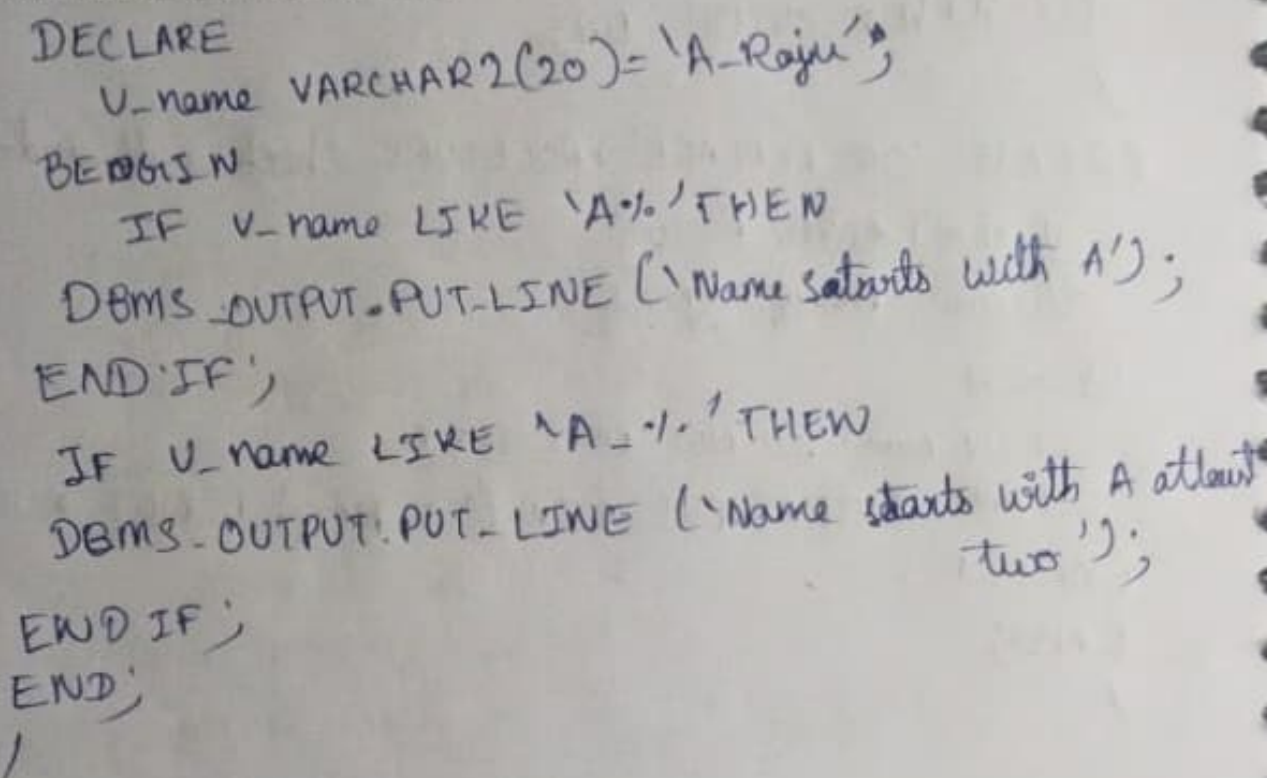 DECLARE
V_name VARCHAR2(20)= 'A_Raju';
BEGIN
IF V_name LIKE 'A%' THEN
DBMS_OUTPUT.PUT_LINE ('Name satarts with A');
END IF;
IF V_name LIKE 'A_%' THEN
DBMS_OUTPUT.PUT_LINE ('Name starts with A atleast
two');
END IF;
END;
/